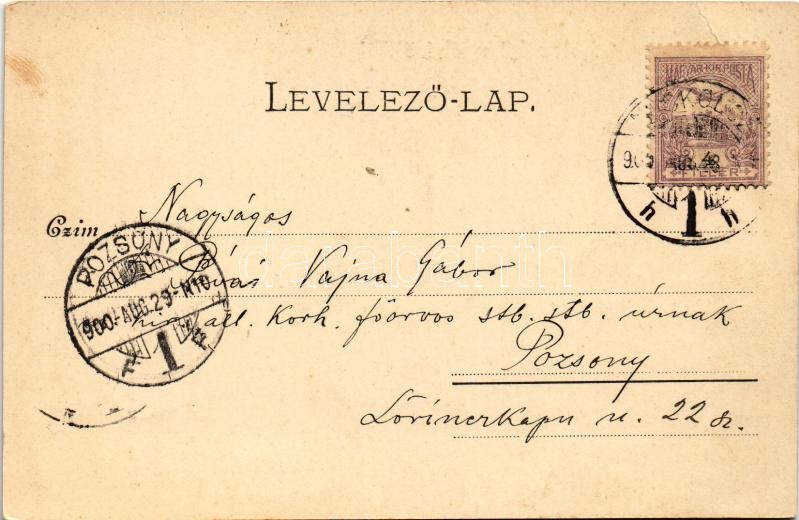 LEVELEZŐ-LAP.
MAGYAR KIR. POSTA
FILLÉR
1
Czim
Nagyságos
Vajna Gábor
áll. korh. főorvos stb. stb. úrnak
Pozsony
Lőrinczkapu u. 22 sz.
POZSONY
900 AUG. 29 N10
1
darabanth